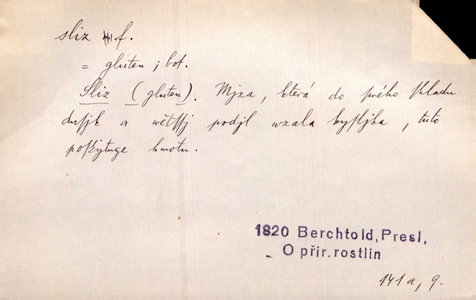 sliz f.
= gluten; bot.
Sliz (gluten). Mjza, která do swého skladu
dusjk a wětssj podjl wzala kysljka, tuto
poskytuge hmotu.
1820 Berchtold, Presl,
O přír. rostlin
141a, 9.